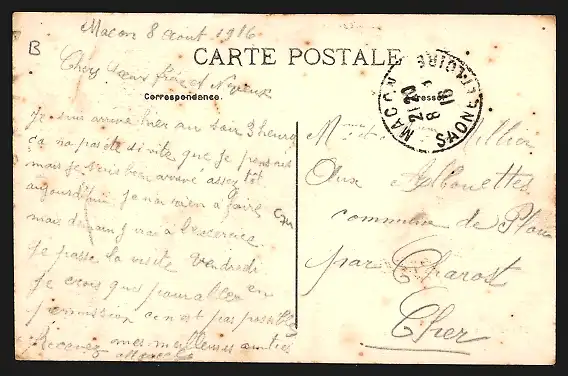 Macon 8 Aout 1916
B
CARTE POSTALE
Chers Sœur frère et Neveux
Correspondance.
MACON
SAONE-ET-LOIRE
21 20
8
16
Je suis arrivé hier au soir 3 heures
ça na pas été si vite que je pensais
mais je suis bien arrivé assez tôt
aujourdhui je nai rien a faire
mais demain j irai a lexercice
Je passe la visite Vendredi
Je crois que pour aller en
permission ce nest pas possible
Recevez mes meilleures amitiés
M
Aux Allouettes
commune de
par Charost
Cher